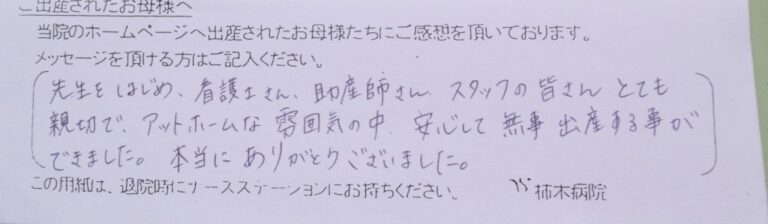 ご出産されたお母様へ
当院のホームページへ出産されたお母様たちにご感想を頂いております。
メッセージを頂ける方はご記入ください。
先生をはじめ、看護士さん、助産師さん、スタッフの皆さん とても
親切で、アットホームな 雰囲気の中、安心して 無事 出産する事が
できました。本当に ありがとうございました。
この用紙は、退院時にナースステーションにお持ちください。 柿木病院